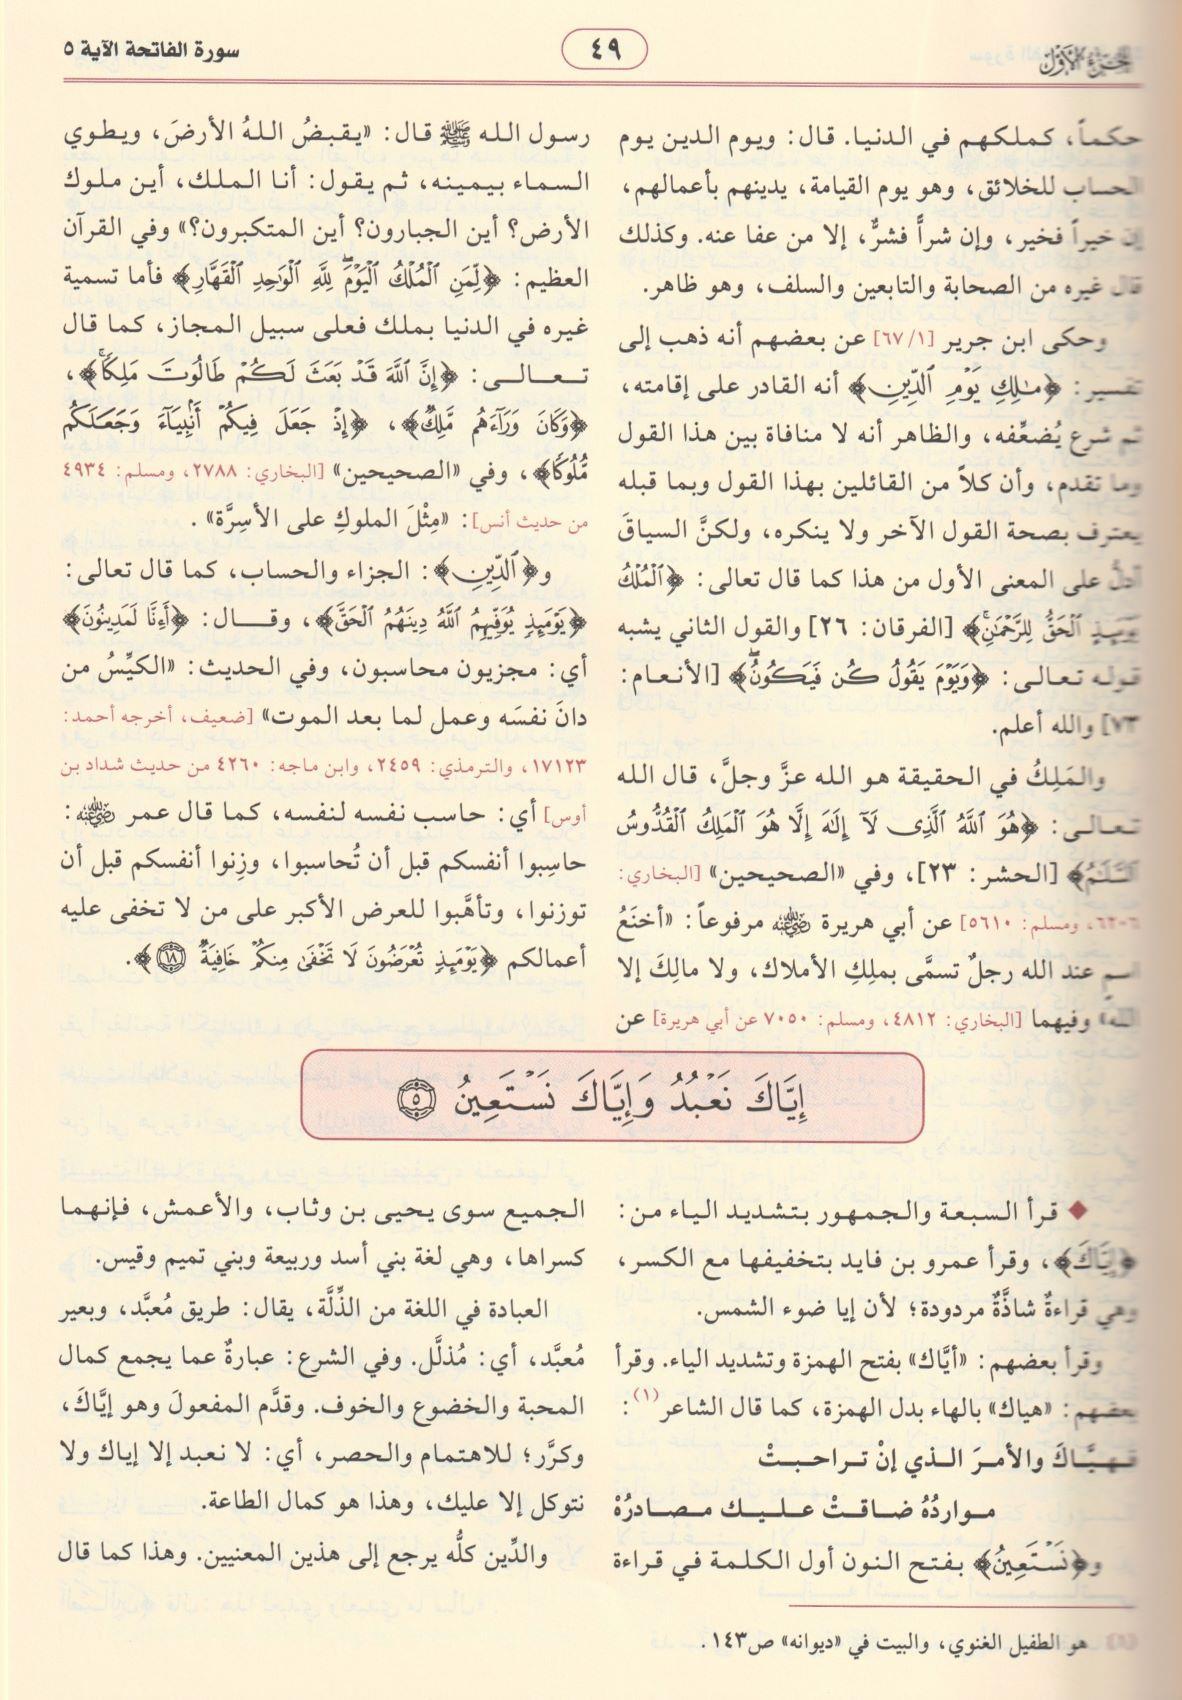 الجزء الأول
٤٩
سورة الفاتحة الآية ٥
حكماً، كملكهم في الدنيا. قال: ويوم الدين يوم
الحساب للخلائق، وهو يوم القيامة، يدينهم بأعمالهم،
إن خيراً فخير، وإن شراً فشرٌّ، إلا من عفا عنه. وكذلك
قال غيره من الصحابة والتابعين والسلف، وهو ظاهر.
وحكى ابن جرير [٦٧/١] عن بعضهم أنه ذهب إلى
تفسير: ﴿مَٰلِكِ يَوْمِ ٱلدِّينِ﴾ أنه القادر على إقامته،
ثم شرع يُضعِّفه، والظاهر أنه لا منافاة بين هذا القول
وما تقدم، وأن كلاً من القائلين بهذا القول وبما قبله
يعترف بصحة القول الآخر ولا ينكره، ولكنَّ السياقَ
أدلُّ على المعنى الأول من هذا كما قال تعالى: ﴿ٱلْمُلْكُ
يَوْمَئِذٍ ٱلْحَقُّ لِلرَّحْمَٰنِ﴾ [الفرقان: ٢٦] والقول الثاني يشبه
قوله تعالى: ﴿وَيَوْمَ يَقُولُ كُن فَيَكُونُ﴾ [الأنعام:
٧٣] والله أعلم.
والمَلِكُ في الحقيقة هو الله عزَّ وجلَّ، قال الله
تعالى: ﴿هُوَ ٱللَّهُ ٱلَّذِى لَآ إِلَٰهَ إِلَّا هُوَ ٱلْمَلِكُ ٱلْقُدُّوسُ
ٱلسَّلَٰمُ﴾ [الحشر: ٢٣]، وفي «الصحيحين» [البخاري:
٦٢٠٦، ومسلم: ٥٦١٠] عن أبي هريرة رضي الله عنه مرفوعاً: «أخنَعُ
اسمٍ عند الله رجلٌ تسمَّى بملِكِ الأملاك، ولا مالِكَ إلا
الله» وفيهما [البخاري: ٤٨١٢، ومسلم: ٧٠٥٠ عن أبي هريرة] عن
رسول الله ﷺ قال: «يقبضُ اللهُ الأرضَ، ويطوي
السماء بيمينه، ثم يقول: أنا الملك، أين ملوك
الأرض؟ أين الجبارون؟ أين المتكبرون؟» وفي القرآن
العظيم: ﴿لِّمَنِ ٱلْمُلْكُ ٱلْيَوْمَ ۖ لِلَّهِ ٱلْوَٰحِدِ ٱلْقَهَّارِ﴾ فأما تسمية
غيره في الدنيا بملك فعلى سبيل المجاز، كما قال
تعالى: ﴿إِنَّ ٱللَّهَ قَدْ بَعَثَ لَكُمْ طَالُوتَ مَلِكًا﴾،
﴿وَكَانَ وَرَآءَهُم مَّلِكٌ﴾، ﴿إِذْ جَعَلَ فِيكُمْ أَنۢبِيَآءَ وَجَعَلَكُم
مُّلُوكًا﴾، وفي «الصحيحين» [البخاري: ٢٧٨٨، ومسلم: ٤٩٣٤
من حديث أنس]: «مِثْلَ الملوكِ على الأسِرَّة».
و﴿ٱلدِّينِ﴾: الجزاء والحساب، كما قال تعالى:
﴿يَوْمَئِذٍ يُوَفِّيهِمُ ٱللَّهُ دِينَهُمُ ٱلْحَقَّ﴾، وقال: ﴿أَءِنَّا لَمَدِينُونَ﴾
أي: مجزيون محاسبون، وفي الحديث: «الكيِّسُ من
دانَ نفسَه وعمل لما بعد الموت» [ضعيف، أخرجه أحمد:
١٧١٢٣، والترمذي: ٢٤٥٩، وابن ماجه: ٤٢٦٠ من حديث شداد بن
أوس] أي: حاسب نفسه لنفسه، كما قال عمر رضي الله عنه:
حاسِبوا أنفسكم قبل أن تُحاسبوا، وزِنوا أنفسكم قبل أن
توزنوا، وتأهَّبوا للعرض الأكبر على من لا تخفى عليه
أعمالكم ﴿يَوْمَئِذٍ تُعْرَضُونَ لَا تَخْفَىٰ مِنكُمْ خَافِيَةٌ ١٨﴾.
إِيَّاكَ نَعْبُدُ وَإِيَّاكَ نَسْتَعِينُ ٥
◆ قرأ السبعة والجمهور بتشديد الياء من:
﴿إِيَّاكَ﴾، وقرأ عمرو بن فايد بتخفيفها مع الكسر،
وهي قراءةٌ شاذَّةٌ مردودة؛ لأن إيا ضوء الشمس.
وقرأ بعضهم: «أيَّاك» بفتح الهمزة وتشديد الياء. وقرأ
بعضهم: «هياك» بالهاء بدل الهمزة، كما قال الشاعر(١):
فهيَّاكَ والأمرَ الذي إنْ تراحبتْ
مواردُهُ ضاقتْ عليك مصادرُهْ
و﴿نَسْتَعِينُ﴾ بفتح النون أول الكلمة في قراءة
الجميع سوى يحيى بن وثاب، والأعمش، فإنهما
كسراها، وهي لغة بني أسد وربيعة وبني تميم وقيس.
العبادة في اللغة من الذِّلَّة، يقال: طريق مُعبَّد، وبعير
مُعبَّد، أي: مُذلَّل. وفي الشرع: عبارةٌ عما يجمع كمال
المحبة والخضوع والخوف. وقدَّم المفعولَ وهو إيَّاكَ،
وكرَّر؛ للاهتمام والحصر، أي: لا نعبد إلا إياك ولا
نتوكل إلا عليك، وهذا هو كمال الطاعة.
والدِّين كلُّه يرجع إلى هذين المعنيين. وهذا كما قال
(١) هو الطفيل الغنوي، والبيت في «ديوانه» ص١٤٣.